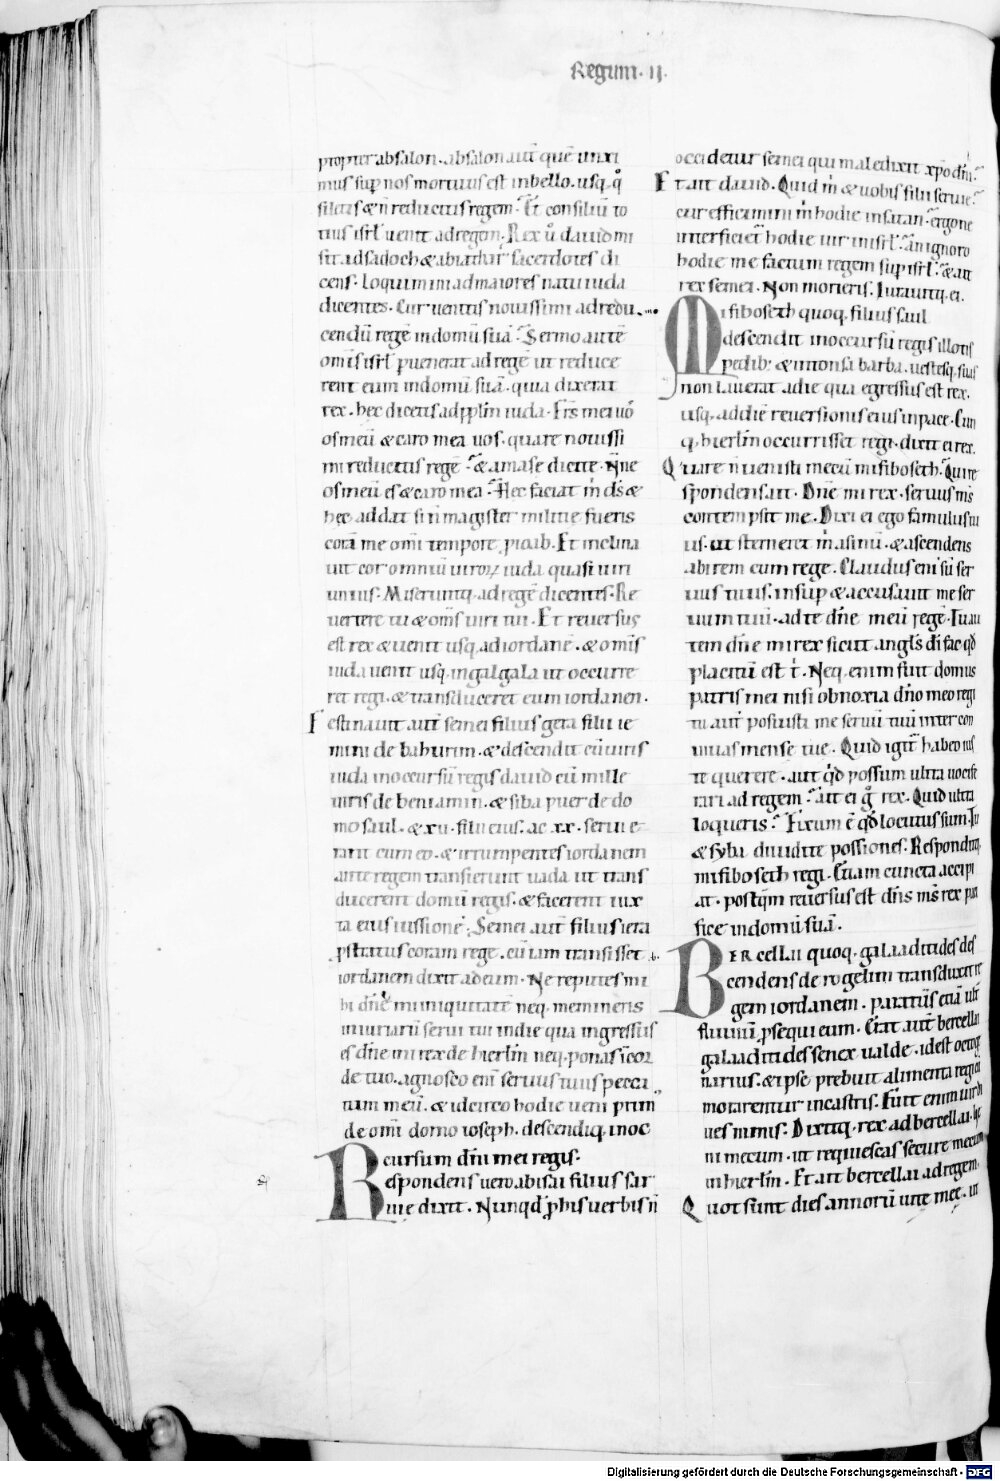 Regum · II ·
propter absalon · absalon aut̄ quē unxi
mus sup̄ nos mortuus est in bello · usq; qͦ
siletis & n̄ reducitis regem · Et consiliū to
tius isrl̄ uenit ad regem · Rex ů dauid mi
sit ad sadoch & abiathar sacerdotes di
cens · Loquimini ad maiores natu iuda
dicentes · Cur uenitis nouissimi ad redu
cendū regē in domū suā · Sermo autē
om̄is isrl̄ peruenerat ad regē ut reduce
rent eum in domū suā · quia dixerat
rex · hec dicetis ad pp̄lm iuda · Fr̄s mei uos
os meū & caro mea uos · quare nouissi
mi reducitis regē · & amase dicite · Nonne
os meū es & caro mea · Hec faciat m̄ ds̄ &
hec addat si n̄ magister militie fueris
corā me om̄i tempore pro ioab · Et inclina
uit cor omniū uiroꝝ iuda quasi uiri
unius · Miseruntq; ad regē dicentes · Re
uertere tu & om̄s uiri tui · Et reuersus
est rex & uenit usq; ad iordanē · & om̄is
iuda uenit usq; in galgala ut occurre
ret regi · & transduceret eum iordanen ·
Festinauit aut̄ semei filius gera filii ie
mini de bahurim · & descendit cū uiris
iuda in occursū regis dauid cū mille
uiris de beniamin · & siba puer de do
mo saul · & xv · filii eius · ac xx · serui e
rant cum eo · & irrumpentes iordanem
ante regem transierunt uada ut trans
ducerent domū regis · & facerent iux
ta eius iussionē · Semei aut̄ filius iera
pstratus coram rege · cū iam transisset
iordanem dixit ad eum · Ne reputes mi
hi dn̄e mi iniquitatē neq; memineris
iniuriarū serui tui in die qua ingressus
es dn̄e mi rex de hierlm̄ neq; ponas in cor
de tuo · agnosco eni͂ seruus tuus pecca
tum meū · & idcirco hodie ueni prim
de om̄i domo ioseph · descendiq; in oc
cursum dn̄i mei regis ·
Respondens uero abisai filius sar
uie dixit · Nunqd͂ p̱ his uerbis n̄
occidetur semei qui maledixit xp̄o dn̄i
Et ait dauid · Quid m̄ & uobis filii saruie
cur efficimini m̄ hodie in satan · ergone
interficiet̄ hodie uir in isrl̄ · an ignoro
hodie me factum regem sup̄ isrl̄ · & ait
rex semei · Non morieris · Iurauitq; ei ·
Mifiboseth quoq; filius saul
descendit in occursū regis illotis
pedib; & intonsa barba · uestesq; suas
non lauerat a die qua egressus est rex ·
usq; ad diē reuersionis eius in pace · Cum
q; hierlm̄ occurrisset regi · dixit ei rex ·
Quare n̄ uenisti mecū mifiboseth · Qui re
spondens ait · Dn̄e mi rex · seruus ms̄
contempsit me · Dixi ei ego famulus tu
us · ut sterneret m̄ asinū · & ascendens
abirem cum rege · Claudus eni͂ sū ser
uus tuus · insup̄ & accusauit me ser
uum tuū · ad te dn̄e meū regē · Tu au
tem dn̄e mi rex sicut angls̄ dī fac qd̄
placitū est t̄ · Neq; enim fuit domus
patris mei nisi obnoxia dn̄o meo regi
tu aut̄ posuisti me seruū tuū inter con
uiuas mense tue · Quid igit̄ habeo ius
te querere · aut qd̄ possum ultra uocife
rari ad regem · ait ei g̊ rex · Quid ultra
loqueris · Fixum ē qd̄ locutus sum · Tu
& syba diuidite possiones · Responditq;
mifiboseth regi · Etiam cuncta accipi
at · postq̄m reuersus est dn̄s ms̄ rex paci
fice in domū suā ·
Bercellai quoq; galaaditides des
cendens de rogelim transduxit re
gem iordanem · paratus etiā ult̄
fluuiū psequi eum · Erat aut̄ bercellai
galaaditides senex ualde · idest octog
narius · & ipse prebuit alimenta regi cū
moraretur in castris · Fuit enim uir di
ues nimis · Dixitq; rex ad bercellai · Ue
ni mecum · ut requiescas secure mecum
in hierlm̄ · Et ait bercellai ad regem ·
Quot sunt dies annorū uite mee · ut
Digitalisierung gefördert durch die Deutsche Forschungsgemeinschaft - DFG